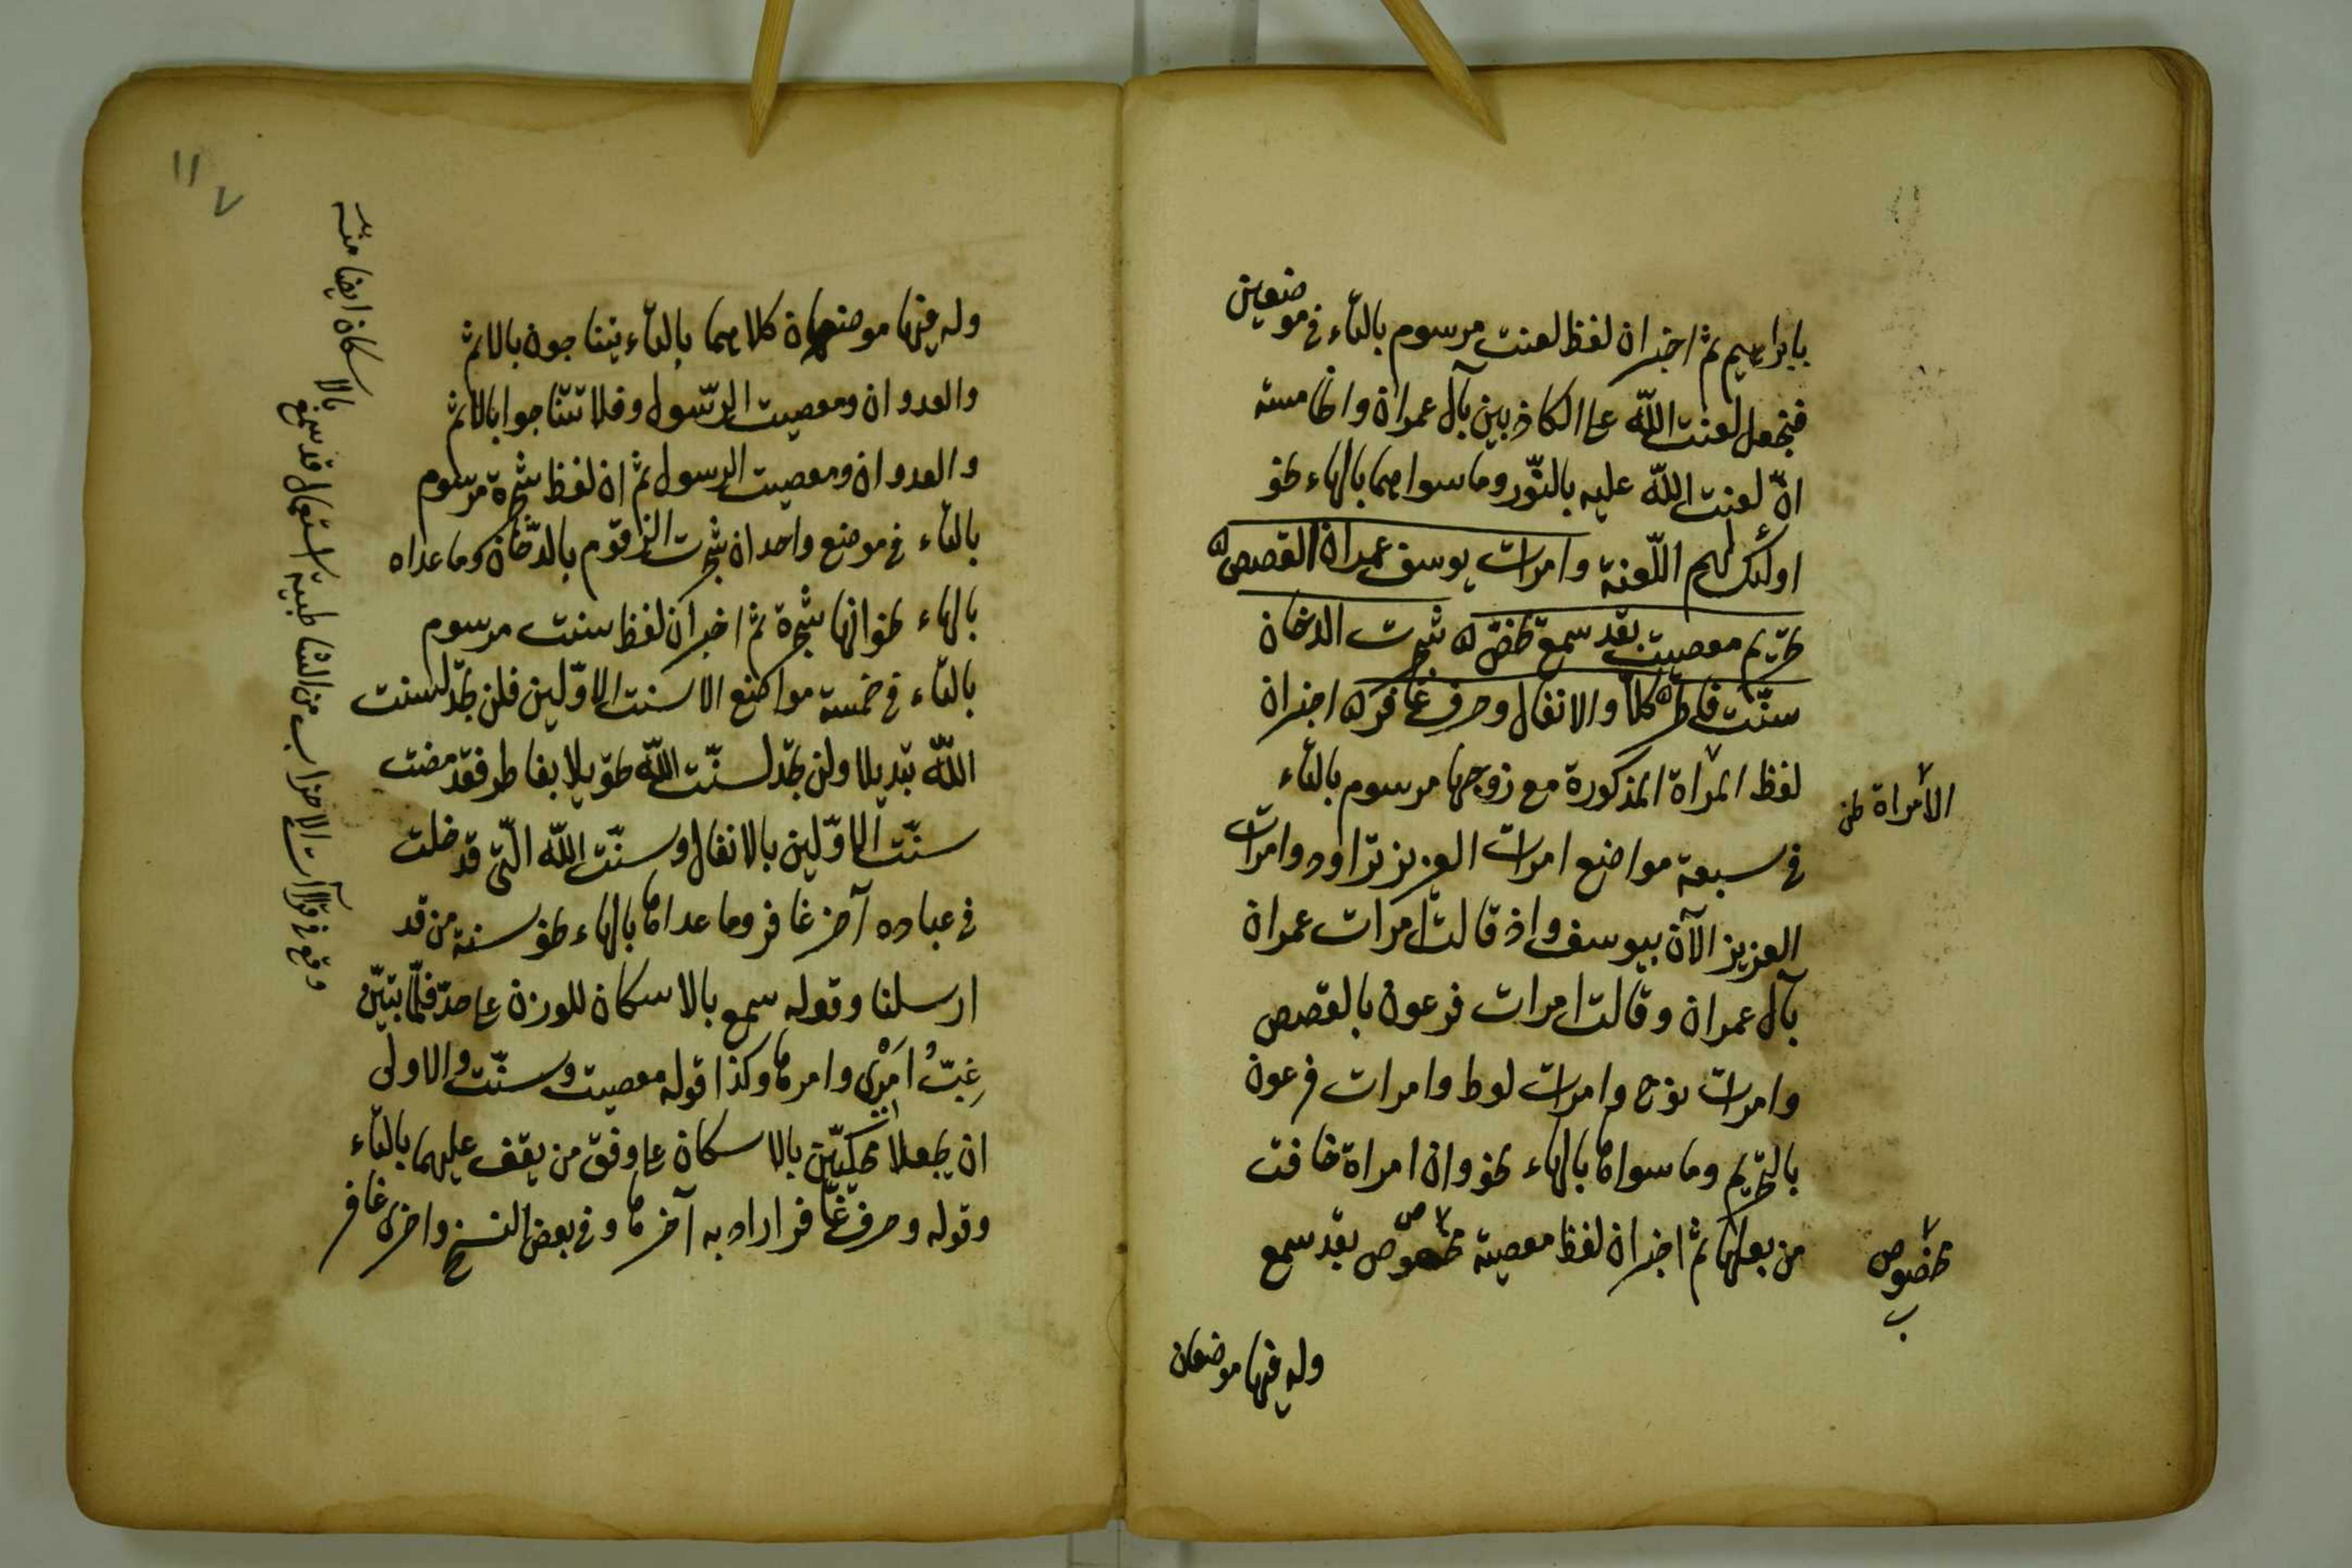 بابراهيم ثم اخبر ان لفظ لعنت مرسوم بالتاء في موضعين
فنجعل لعنت الله على الكاذبين بآل عمران والخامسة
ان لعنت الله عليه بالنّور وما سواهما بالهاء نحو
اولئك لهم اللّعنة وامرات يوسف عمران القصص
تحريم معصيت بقد سمع يخصّ شجرت الدخان
سنّت فاطر كلا والانفال وحرف غافر اخبر ان
لفظ المرأة المذكورة مع زوجها مرسوم بالتاء
في سبعة مواضع امرات العزيز تراود وامرات
العزيز الآن بيوسف واذ قالت امرات عمران
بآل عمران وقالت امرات فرعون بالقصص
وامرات نوح وامرات لوط وامرات فرعون
بالتحريم وما سواها بالهاء نحو وان امراة خافت
من بعلها ثم اخبر ان لفظ معصية مخصوص بقد سمع
الامراة نحن
مخصوص
ب
وله فيها موضعان
وله فيها موضعان كلاهما بالتاء يتناجون بالاثم
والعدوان ومعصيت الرّسول وفلا تتناجوا بالاثم
والعدوان ومعصيت الرسول ثم ان لفظ شجرة مرسوم
بالتاء في موضع واحد ان شجرت الزقوم بالدّخان وما عداه
بالهاء نحو انها شجرة ثم اخبر ان لفظ سنت مرسوم
بالتاء في خمسة مواضع الا سنت الاوّلين فلن تجد لسنت
اللّه تبديلا ولن تجد لسنّت اللّه تحويلا بفاطر فقد مضت
سنّت الاوّلين بالانفال وسنّت اللّه الّتي قد خلت
في عباده آخر غافر وما عداها بالهاء نحو سنة من قد
ارسلنا وقوله سمع بالاسكان للوزن على حدّ فلمّا تبيّن
غِبّ امْرى وامرها وكذا قوله معصيت وسنّت والاولى
ان يجعلا محكيّين بالاسكان على وفق من يقف عليهما بالتاء
وقوله وحرف غافر اراد به آخرها وفي بعض النسخ واخرى غافر
وقع في قرآات الاحزاب من الشاطبية استعمال قد سمع
بالاسكان ايضا منه
١١٧